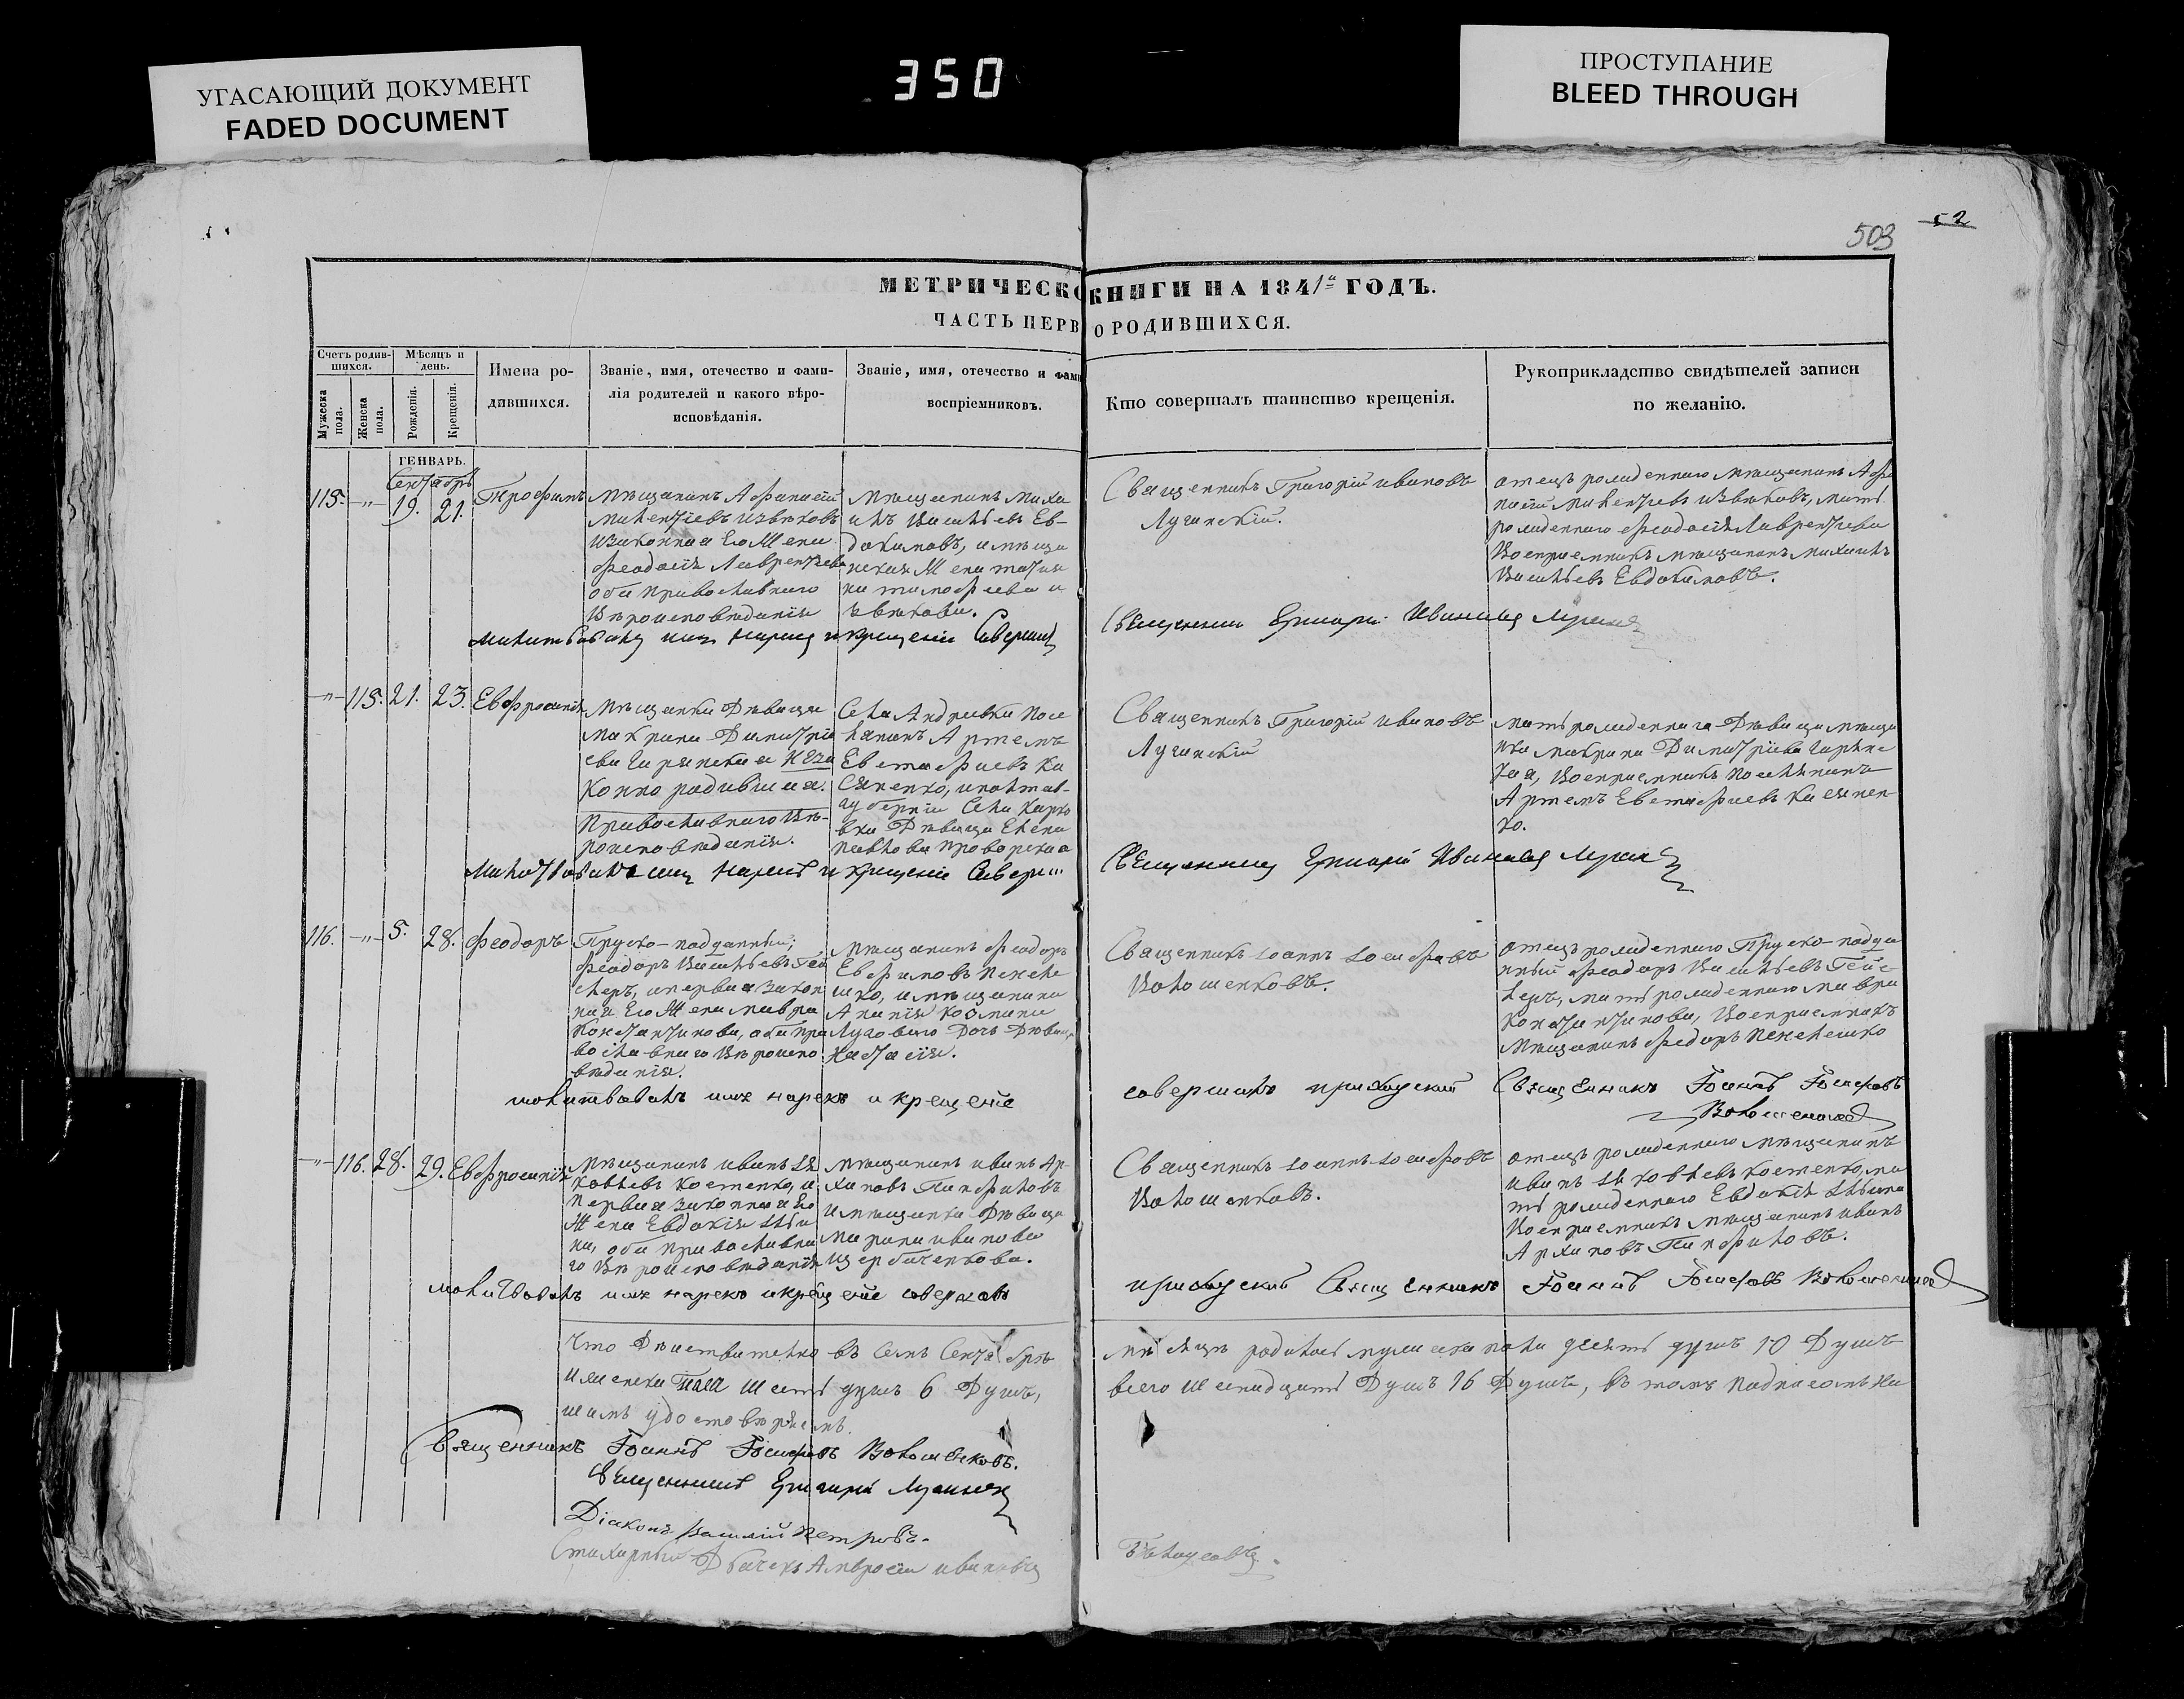 УГАСАЮЩИЙ ДОКУМЕНТ
FADED DOCUMENT
350
ПРОСТУПАНИЕ
BLEED THROUGH
52
503
МЕТРИЧЕСКО КНИГИ НА 1841й ГОДЪ.
ЧАСТЬ ПЕРВ О РОДИВШИХСЯ.
Счетъ родив-
шихся.
Мужеска
пола.
Женска
пола.
Мѣсяцъ и
день.
Рожденія.
Крещенія.
Имена ро-
дившихся.
Званіе, имя, отечество и фами-
лія родителей и какого вѣро-
исповѣданія.
Званіе, имя, отечество и фами
воспріемниковъ.
Кто совершалъ таинство крещенія.
Рукоприкладство свидѣтелей записи
по желанію.
ГЕНВАРЬ.
Сентябрь
115. -"- 19. 21.
Трофимъ
Мѣщанинъ Афанасій
Милентіевъ Извѣковъ
и законная Его Жена
Феодосія Лаврентьева
оба православнаго
Вѣроисповѣданія
Мѣщанинъ Миха
илъ Васильевъ Ев-
докимовъ, и мѣща
нская Жена Татья
на Тимофеева
Священникъ Григорій Ивановъ
Лучинскій.
отецъ рожденнаго мѣщанинъ Афа
насій Милентіевъ Извѣковъ, мать
рожденнаго Феодосія Лаврентьева
Воспріемникъ мѣщанинъ Михаилъ
Васильевъ Евдокимовъ.
Молитвовалъ имя нарицъ и крещеніе Соверши
Священникъ Григорій Ивановъ
-"- 115. 21. 23.
Евфросинія
Мѣщанка Дѣвица
Макрина Димитріе
ва незаконно родившая.
Православнаго Вѣ-
роисповѣданія.
Села Андреевки посе
лянинъ Артемъ
Евстафіевъ Ка
сяненко, и полтав-
губерніи Села
Дѣвица Елена
Павлова
Священникъ Григорій Ивановъ
Лучинскій
мать рожденнаго Дѣвица мѣща
нка Макрина Димитріева
Воспріемникъ поселянинъ
Артемъ Евстафіевъ Касянен-
ко.
Молитвовалъ имя нарекъ и крещеніе Соверш
Священникъ Григорій Ивановъ
116. -"- 5. 28.
Феодоръ
Пруско-подданный,
Феодоръ Васильевъ Гей
слеръ, и первая закон
ная Его Жена Мавра
Константинова, оба пра
вославнаго Вѣроиспо
вѣданія.
Мѣщанинъ Феодоръ
Ефимовъ
и мѣщанина
Ананія Космина
Луговаго Дочь Дѣвица
Настасія.
Священникъ Іоаннъ Іосифовъ
Волошенковъ.
отецъ рожденнаго Пруско-подда
нный Феодоръ Васильевъ Гейс
леръ, мать рожденнаго Мавра
Константинова, Воспріемникъ
мѣщанинъ Федоръ
молитвовалъ имя нарекъ и крещеніе
совершилъ приходскій Священникъ Іоаннъ Іосифовъ
Волошенковъ
-"- 116. 28. 29.
Евфросинія
Мѣщанинъ Иванъ Я
ковлевъ Костенко, и
первая законная Его
Жена Евдокія
оба православна
го Вѣроисповѣданія
Мѣщанинъ Иванъ Ар-
хиповъ Панфиловъ
и мѣщанка Дѣвица
Марина Иванова
Щербаченкова.
Священникъ Іоаннъ Іосифовъ
Волошенковъ.
отецъ рожденнаго мѣщанинъ
Иванъ Яковлевъ Костенко, ма
ть рожденнаго Евдокія
Воспріемникъ мѣщанинъ Иванъ
Архиповъ Панфиловъ.
молитвовалъ имя нарекъ и крещеніе совершилъ
приходскій Священникъ Іоаннъ Іосифовъ Волошенковъ
Что Дѣйствительно въ семъ Сентябрѣ
мѣсяцѣ родилось мужеска пола десять душъ 10 Душъ
и женска пола шесть душъ 6 Душъ,
всего шестнадцать Душъ 16 Душъ, въ томъ подписомъ на
шимъ удостовѣряемъ.
Священникъ Іоаннъ Іосифовъ Волошенковъ.
Священникъ Григорій Лучинскій
Діаконъ Василій Петровъ.
Стихарный Дьячекъ Амвросій Ивановъ
Бѣлоусовъ.